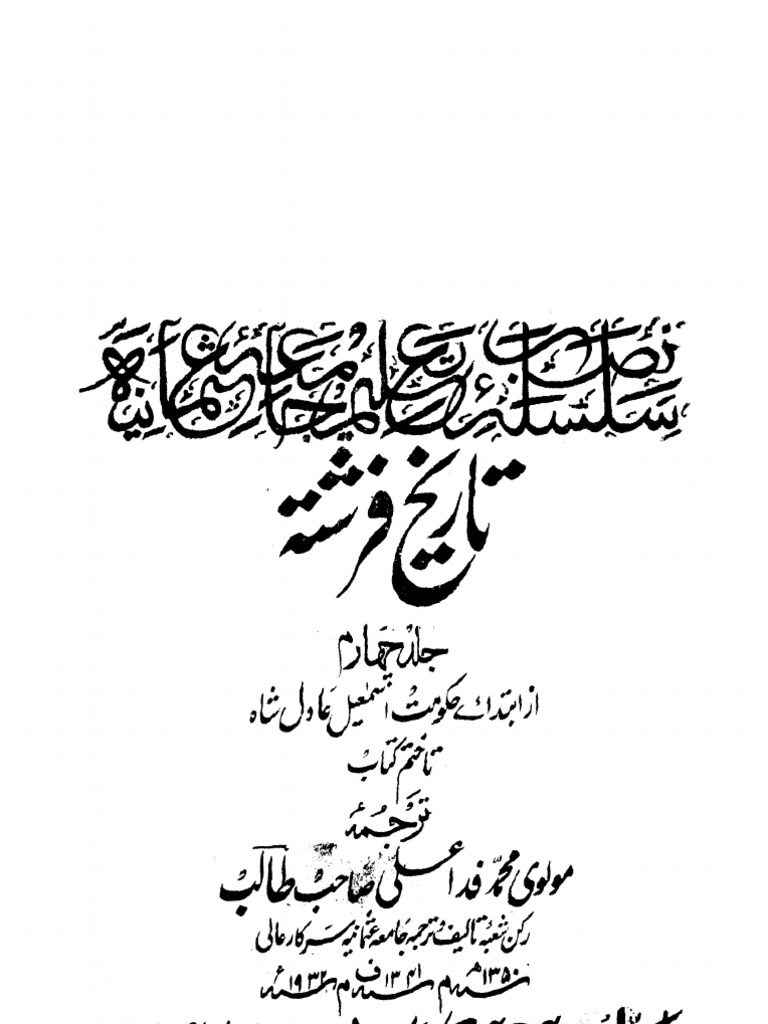 سلسلۂ نصاب تعلیم جامعۂ عثمانیہ
تاریخ فرشتہ
جلد چہارم
از ابتدائے حکومت اسمٰعیل عادل شاہ
تا ختم کتاب
ترجمۂ
مولوی محمد فدا علی صاحب طالب
رکن شعبۂ تالیف و ترجمہ جامعہ عثمانیہ سرکار عالی
۱۳۵۰ھ م ۱۳۴۱ف م ۱۹۳۲ء